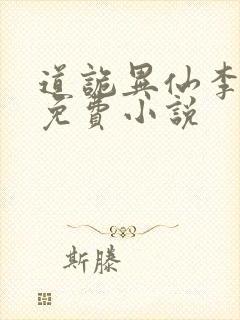 道詭異仙李
免費小説
斯滕